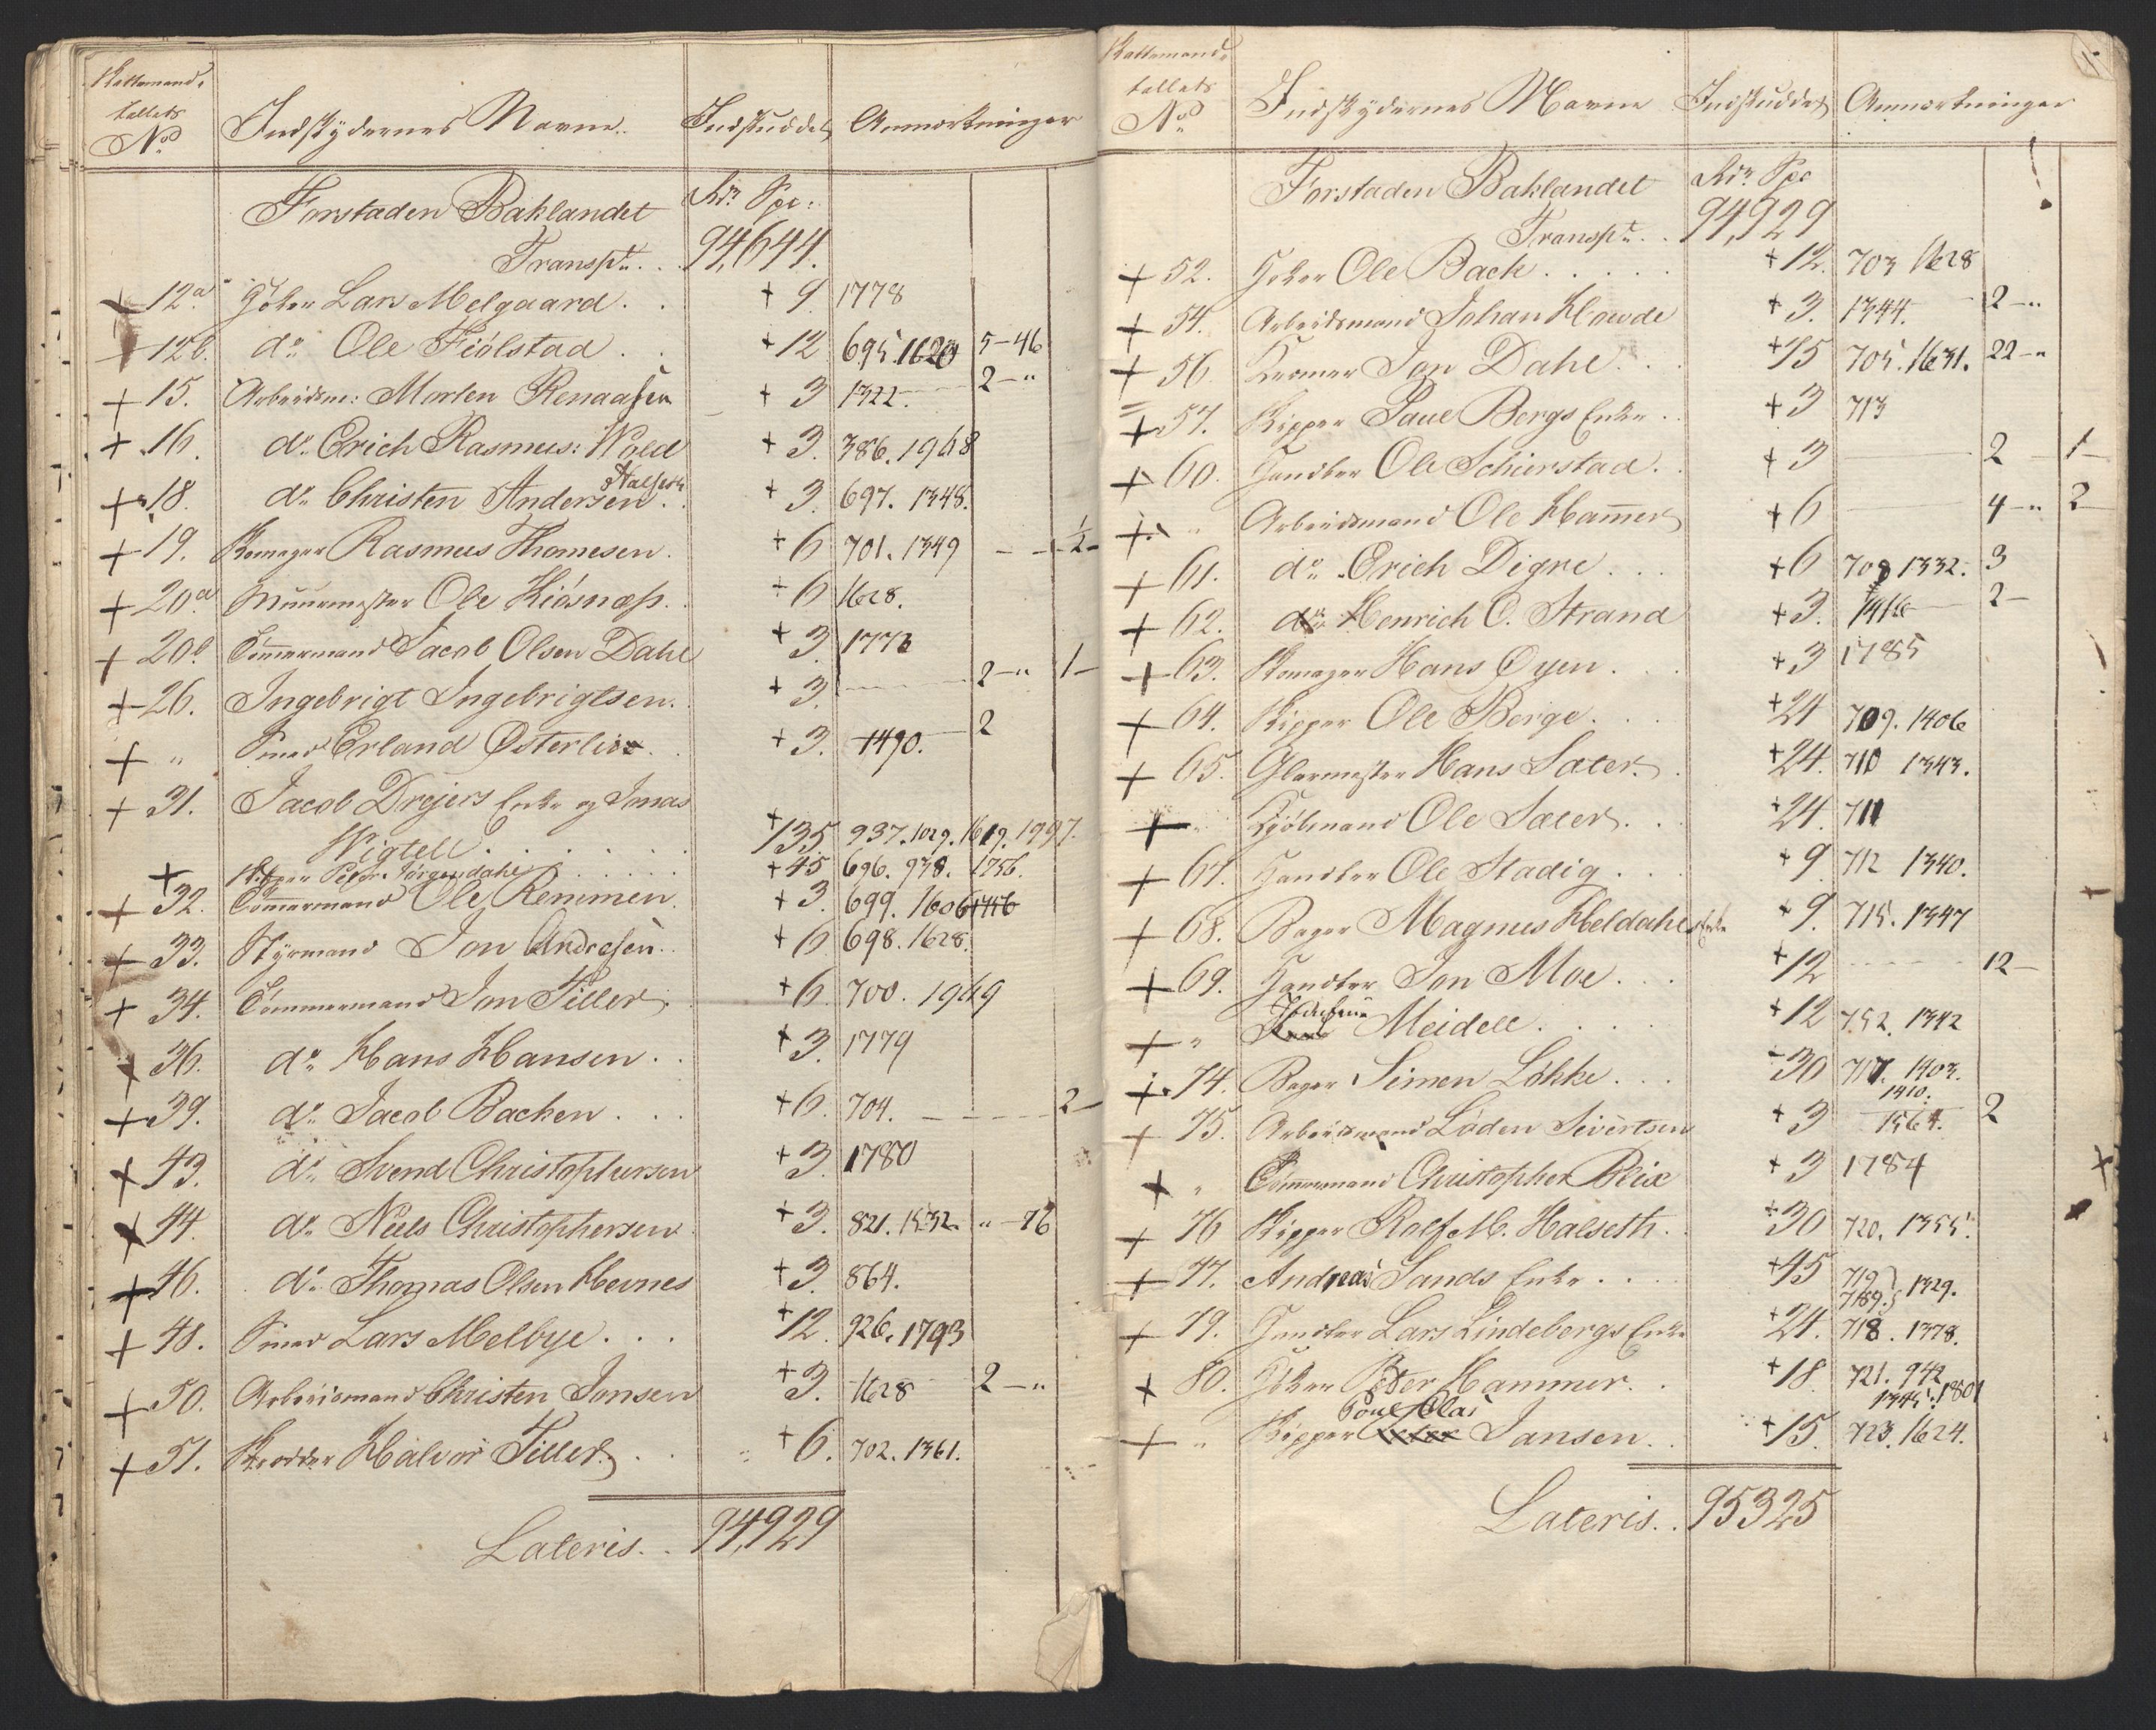 Skattemand-
tallets
No
Indskydernes Navne.
Indskuddet
Anmærkninger
Forstaden Baklandet
Rdr. Spc:
Transpt. . . 94,644.
+ 12a Høker Lars Melgaard . . + 9. 1778
+ 12b. do Ole Fiölstad . . + 12 695. 1620 5-46
+ 15. Arbeidsm: Morten Renaasen + 3 1322. 2-"
+ 16. do Erich Rasmus: Wold + 3. 386. 1968
Halseth
+ 18. do Christen Andersen . + 3. 697. 1348.
+ 19. Skomager Rasmus Thomesen. + 6 701. 1349 - - 1/2 -
+ 20a Muurmester Ole Kiösnæs. + 6 1628.
+ 20b Tömmermand Jacob Olsen Dahl + 3. 1773
+ 26. Ingebrigt Ingebrigtsen. + 3. 2-" 1-
+ " Smed Erland Østerlie . + 3. 1490. 2
+ 31. Jacob Drejers Enke og Jonas
Wigtell . . . . . + 135 937. 1029. 1619. 1997.
+ Skipper Peder Jörgendahl . . . . + 45 696. 938. 1756.
+ 32. Tömmermand Ole Remmen. + 3 699. 1606 1756
+ 33. Styrmand Jon Andresen . + 6 698. 1628.
+ 34. Tömmermand Jon Tiller. + 6. 700. 1949
+ 36. do Hans Hansen . . + 3. 1779
+ 39. do Jacob Bachen . . . + 6. 704. 2-
+ 43. do Svend Christophersen + 3. 1780
+ 44. do Niels Christophersen + 3. 821. 1532. "-76
+ 46. do Thomas Olsen Hevnes + 3. 864.
+ 48. Smed Lars Melbye . . . + 12. 926. 1793
+ 50. Arbeidsmand Christen Jonsen + 3. 1628 2-"
+ 51. Skrædder Halvor Tiller . . + 6. 702. 1361.
Lateris. . 94,929
Skattemand-
tallets
No
Indskydernes Navne
Indskuddet
Anmærkninger
Forstaden Baklandet
Rdr. Spc
Transpt. . . 94,929
+ 52. Høker Ole Bach . . . . . + 12. 703 1628
+ 54. Arbeidsmand Johan Howde + 3. 1344. 2-"
+ 56. Kræmer Jon Dahl . . . + 15 705. 1631. 22-"
+ 57. Skipper Paul Bergs Enke . . + 3 713
+ 60. Handler Ole Schierstad . . + 3 2 1-
+ " Arbeidsmand Ole Hammer + 6 4-" 2-
+ 61. do Erich Digre . . . + 6 708 1332. 3
+ 62. do Henrich O. Strand + 3. 1416 2-
+ 63. Skomager Hans Oyen . . . + 3 1785
+ 64. Skipper Ole Berge . . . + 24 709. 1406
+ 65. Glarmester Hans Sæter . . + 24. 710 1343.
+ " Kjöbmand Ole Sæter . . + 24. 711
+ 67. Handler Ole Stadig . . . + 9 712 1340.
+ 68. Bager Magnus Heldahls Enke + 9. 715. 1347
+ 69. Handler Jon Moe . . . + 12 12-
+ " Meidell . . . . + 12 752. 1342
+ 74. Bager Simen Lökke . . . 30 717. 1403.
1410.
+ 75. Arbeidsmand Löden Sivertsen + 3 1564. 2
+ " Tömmermand Christopher Blix + 3 1784
+ 76 Skipper Rolf M. Halseth . . + 30 720. 1355.
+ 77. Andreas Sands Enke . . . . + 45 719
789. } 1329.
+ 79. Handler Lars Lindebergs Enke + 24. 718. 1378.
+ 80. Høker Peter Hammer . . + 18 721. 942
1345. 1801
Poul Olai
+ " Skipper Jansen . . + 15. 723. 1624.
Lateris. . 95325